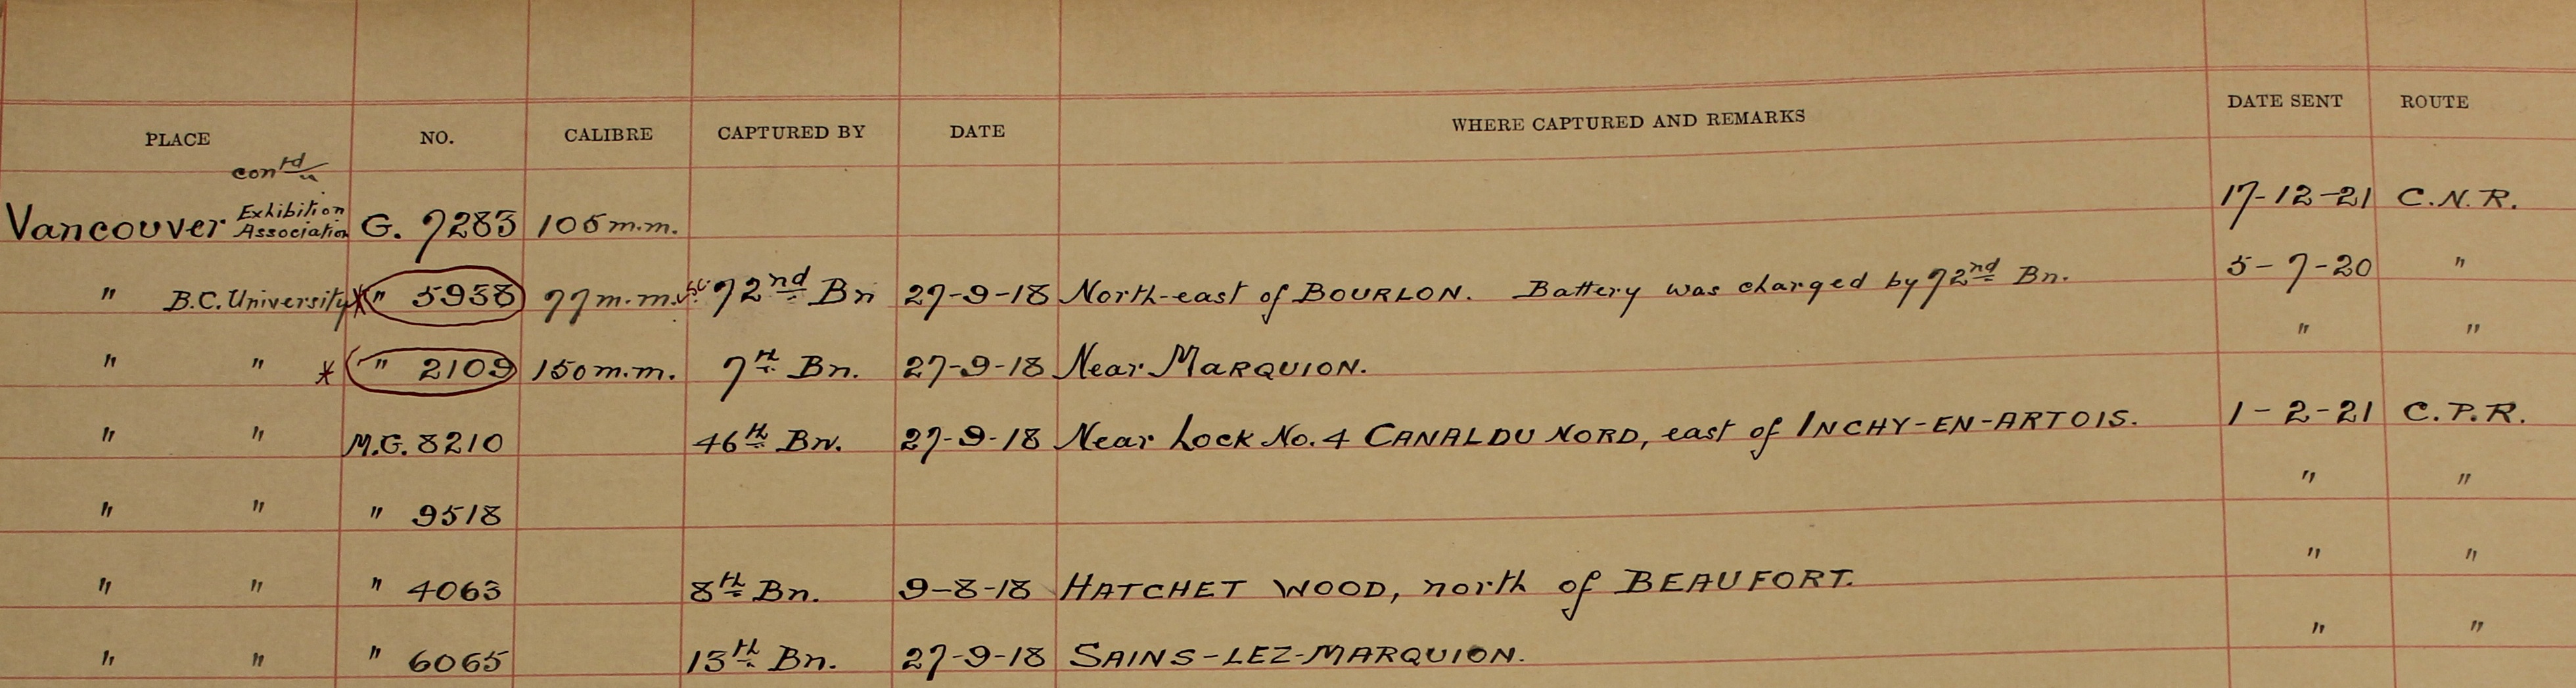 PLACE NO. CALIBRE CAPTURED BY DATE WHERE CAPTURED AND REMARKS DATE SENT ROUTE
cont'd
Vancouver Exhibition Association G. 7283 105 m.m. 17-12-21 C.N.R.
" B.C. University * " 5938 77 m.m. 72nd Bn 27-9-18 North-east of BOURLON. Battery was charged by 72nd Bn. 5-7-20 "
" " * " 2109 150 m.m. 7th Bn. 27-9-18 Near MARQUION. " "
" " M.G. 8210 46th Bn. 27-9-18 Near Lock No. 4 CANAL DU NORD, east of INCHY-EN-ARTOIS. 1-2-21 C.P.R.
" " " 9518 " "
" " " 4063 8th Bn. 9-8-18 HATCHET WOOD, north of BEAUFORT. " "
" " " 6065 13th Bn. 27-9-18 SAINS-LEZ-MARQUION. " "